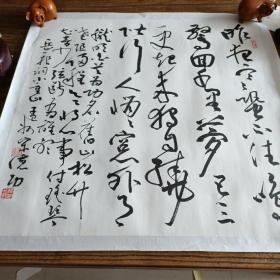 昨夜寒蛩不住鸣
惊回千里梦已三
更起来独自绕
阶行人悄悄窗外月
胧明白首为功名旧山松竹
老阻归程欲将心事付瑶琴
知音少弦断有谁听
岳飞词小重山